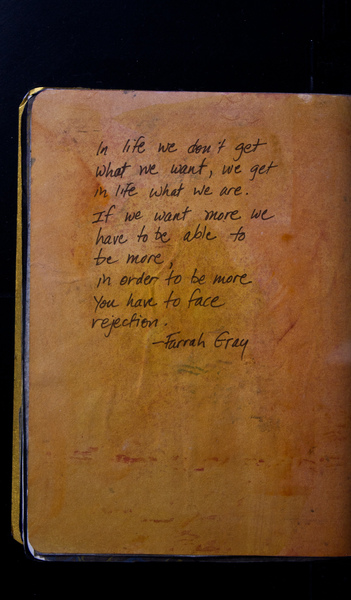 In life we don't get
what we want, we get
in life what we are.
If we want more we
have to be able to
be more,
in order to be more
you have to face
rejection.
—Farrah Gray